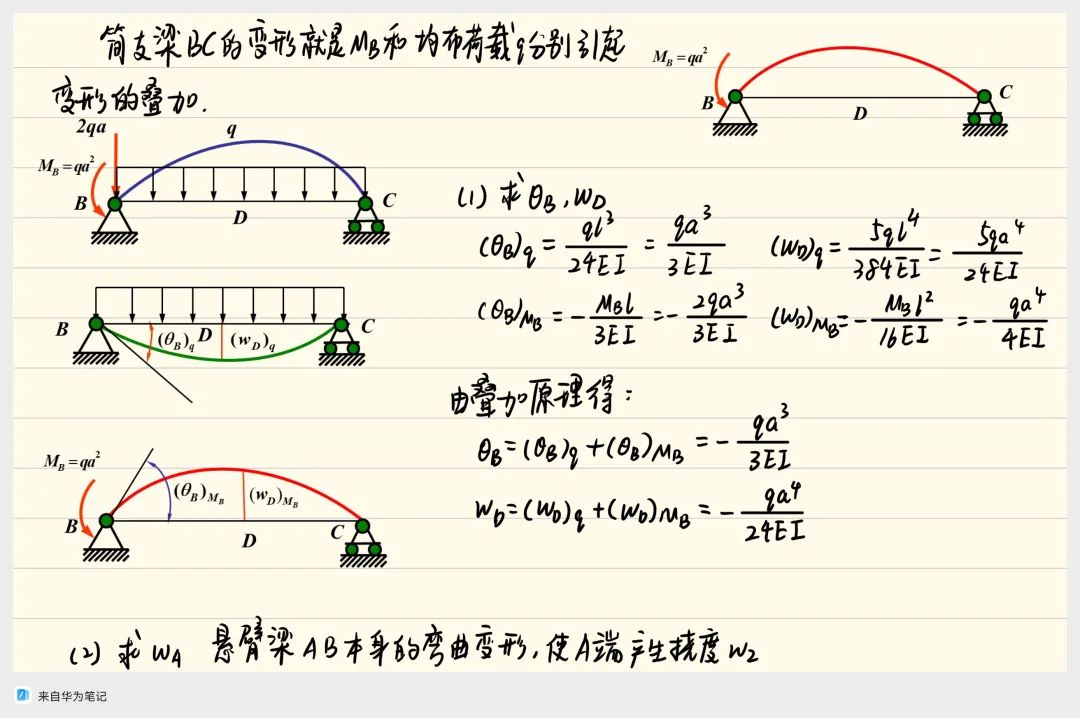 简支梁BC的变形就是MB和均布荷载q分别引起
变形的叠加.
2qa
q
M_B=qa²
B
D
C
B
D
C
(θ_B)_q
(w_D)_q
M_B=qa²
(θ_B)_{M_B}
(w_D)_{M_B}
B
D
C
M_B=qa²
B
D
C
(1) 求θ_B, w_D
(θ_B)_q = ql³/24EI = qa³/3EI (w_D)_q = 5ql⁴/384EI = 5qa⁴/24EI
(θ_B)_{M_B} = -M_Bl/3EI = -2qa³/3EI (w_D)_{M_B} = -M_Bl²/16EI = -qa⁴/4EI
由叠加原理得:
θ_B=(θ_B)_q+(θ_B)_{M_B} = -qa³/3EI
w_D=(w_D)_q+(w_D)_{M_B} = -qa⁴/24EI
(2) 求w_A 悬臂梁AB本身的弯曲变形,使A端产生挠度w₂
来自华为笔记